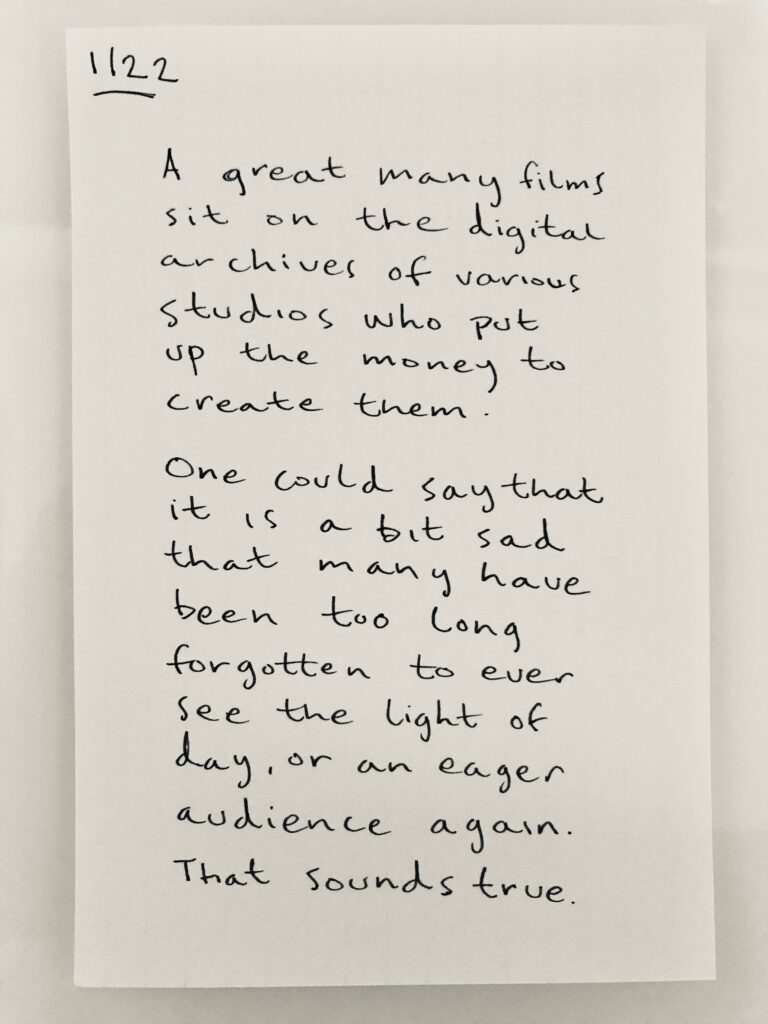 1/22
A great many films
sit on the digital
archives of various
studios who put
up the money to
create them.
One could say that
it is a bit sad
that many have
been too long
forgotten to ever
see the light of
day, or an eager
audience again.
That sounds true.